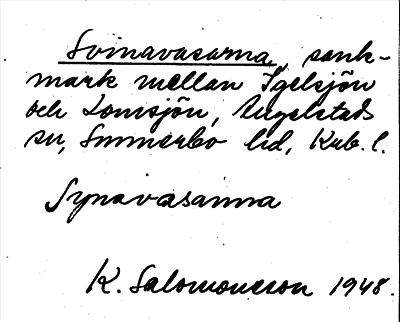 Svinavasarna, sank-
mark mellan Igelsjön
och Lomsjön, Ängelstads
sn, Sunnerbo hd, Kub. l.
Synavasanna
K. Salomonsson 1948.